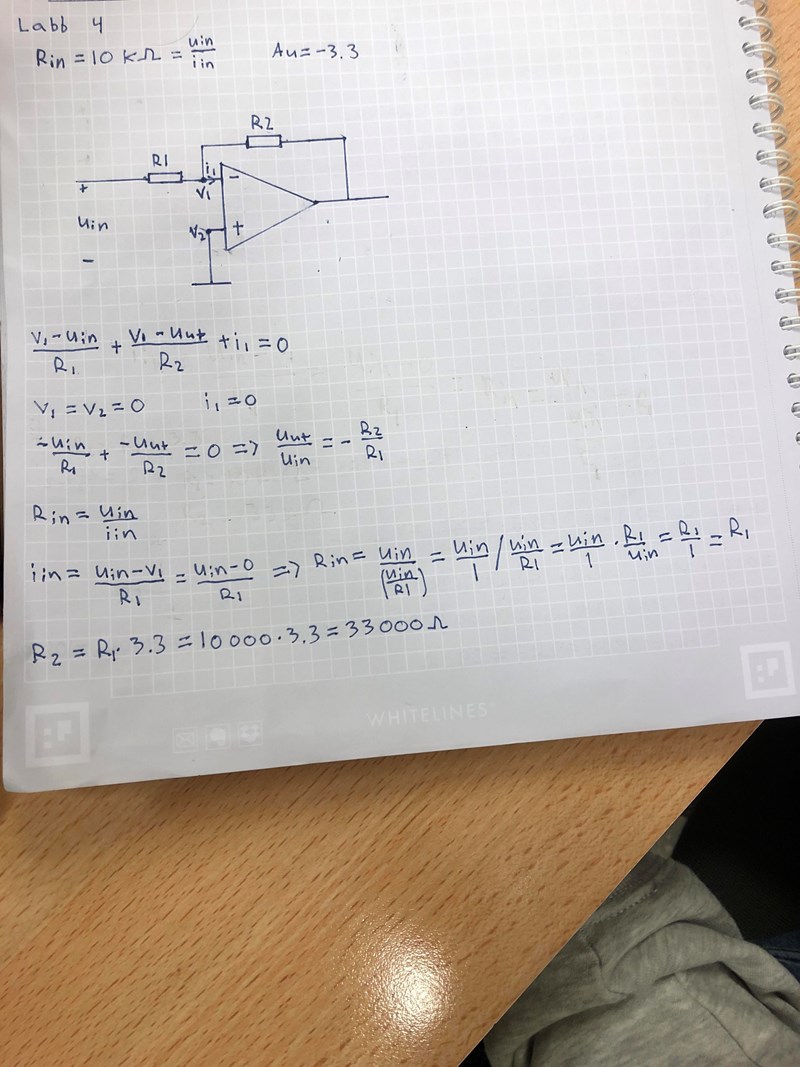 Labb 4
Rin = 10 kΩ = uin/iin    Au = -3.3
R2
R1
i1
-
+
V1
uin
V2
+
-
(V1 - uin)/R1 + (V1 - uut)/R2 + i1 = 0
V1 = V2 = 0    i1 = 0
-uin/R1 + -uut/R2 = 0 => uut/uin = - R2/R1
Rin = uin/iin
iin = (uin - V1)/R1 = (uin - 0)/R1 => Rin = uin/(uin/R1) = uin/1 / uin/R1 = uin/1 · R1/uin = R1/1 = R1
R2 = R1 · 3.3 = 10000 · 3.3 = 33000 Ω
WHITELINES